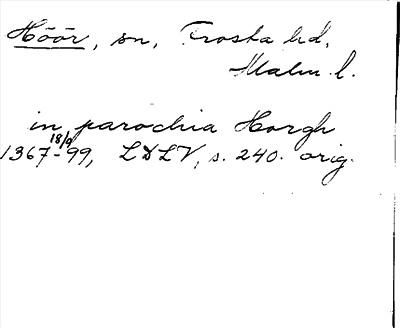 Höör, sn, Frosta hd,
Malm. l.
in parochia Horgh
1367 18/9 - 99, LDLV, s. 240. orig.